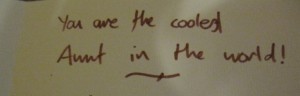 You are the coolest
Aunt in the world!